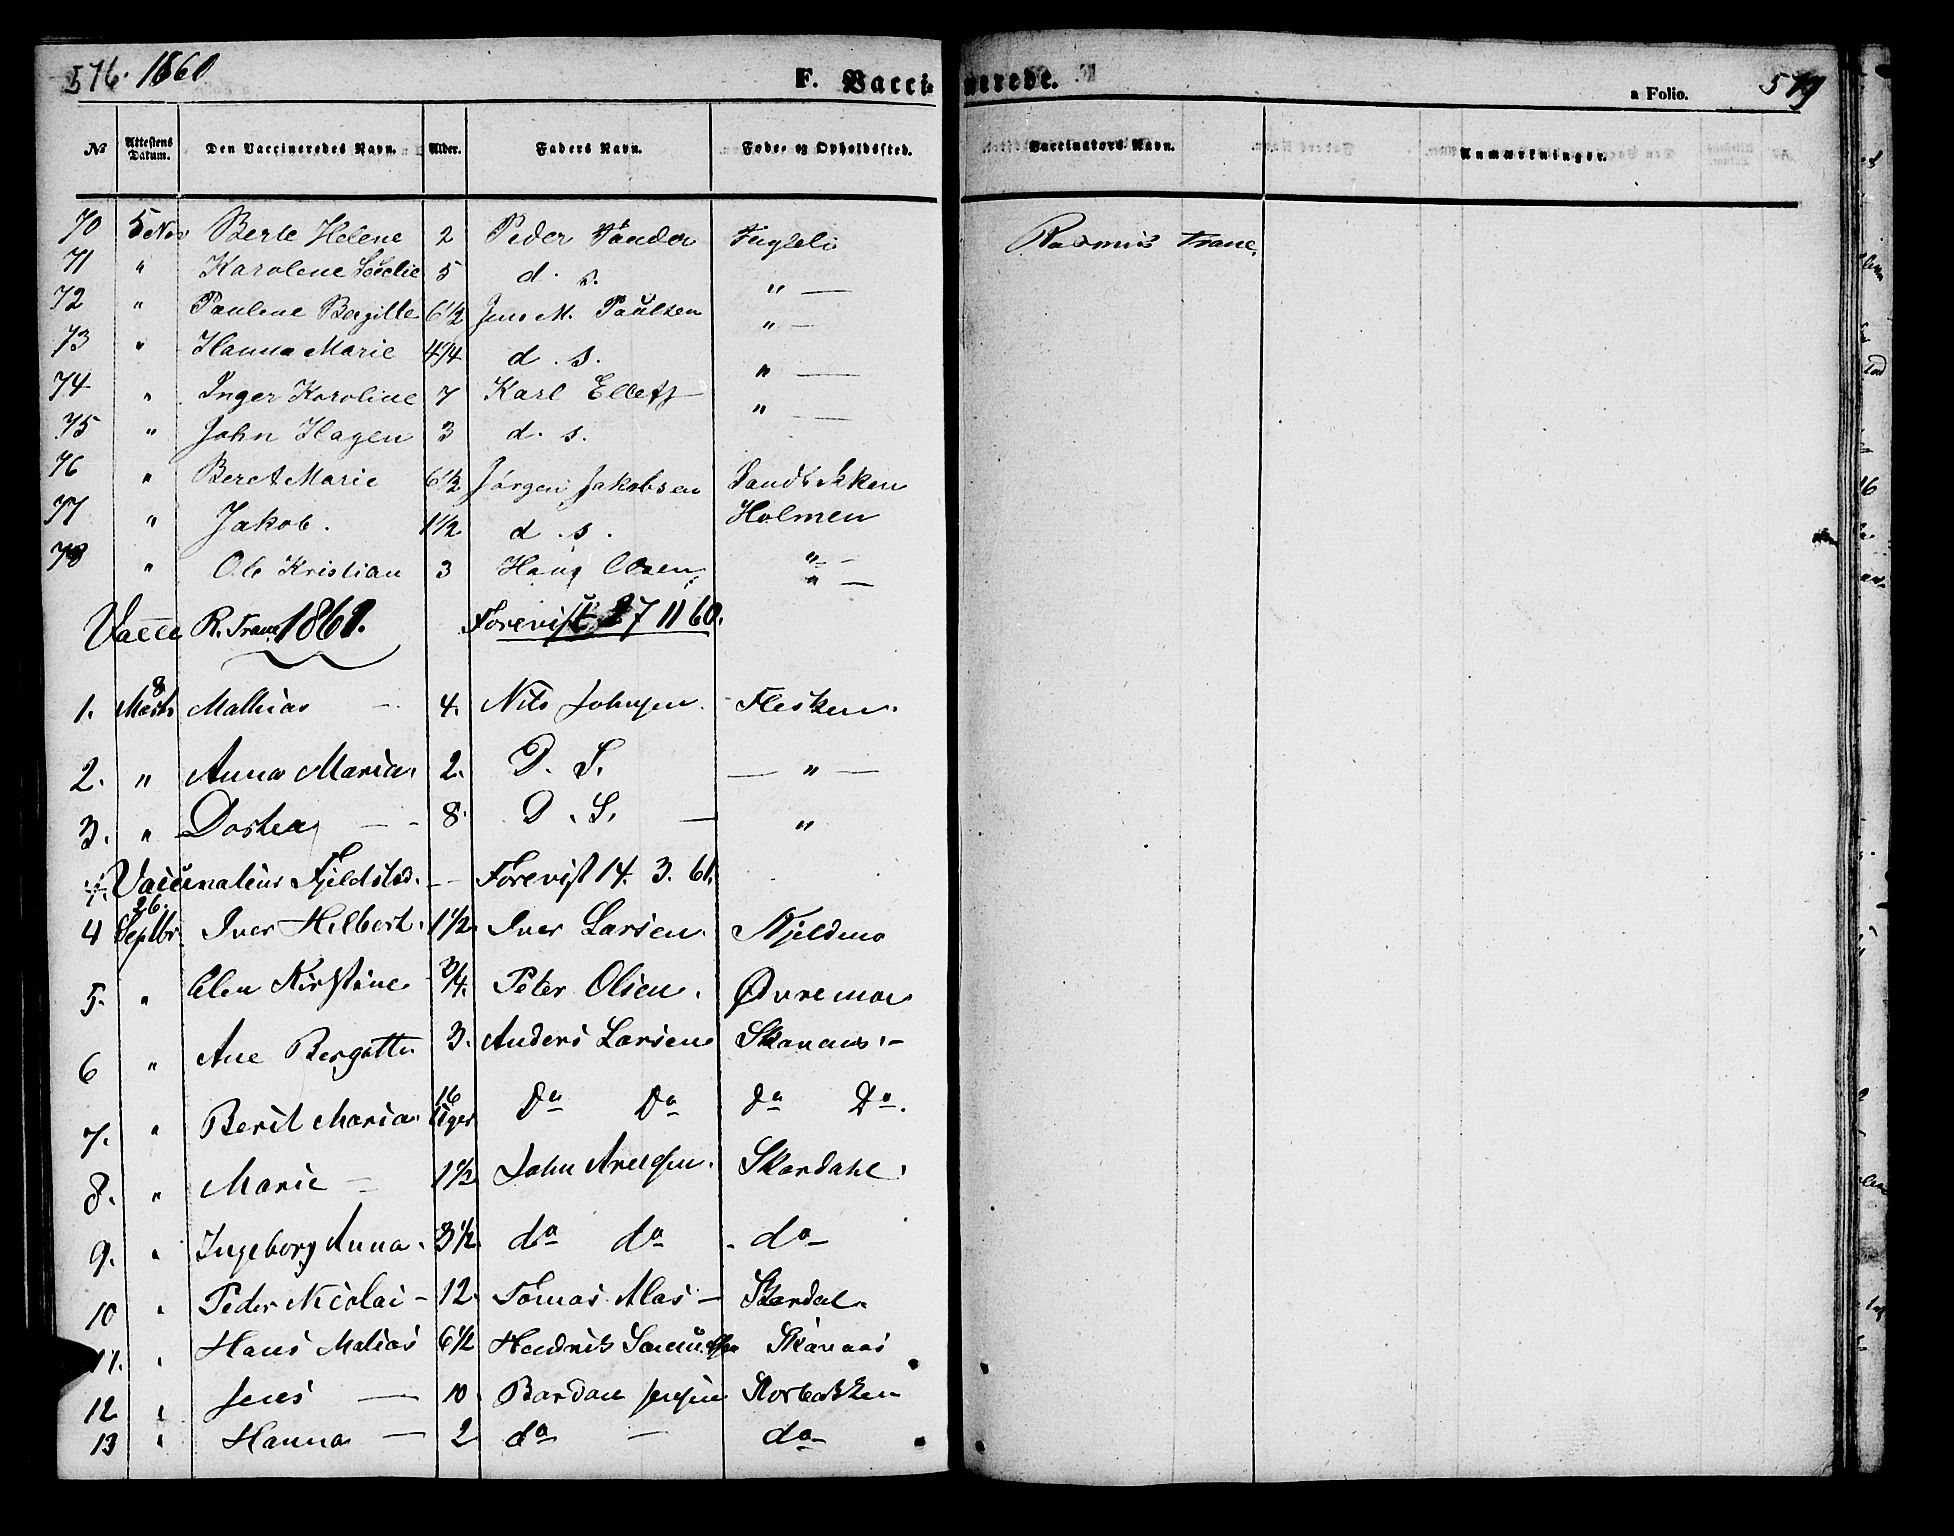 576. 1860
F. Vacci- nerede.
a Folio. 579
№ Attestens Datum. Den Vaccineredes Navn. Alder. Faders Navn. Føde- og Opholdssted. Vaccinators Navn. Anmærkninger.
70 5 Nov Berte Helene 2 Peder Sander Fugleli Rasmus Trane.
71 " Karolene 5 d. s. " —
72 " Paulene Bergitte 6 1/2 Jens M. Paulsen " —
73 " Hanna Marie 4 1/4 d. s. " —
74 " Inger Karoline 7 Karl " —
75 " John Hagen 3 d. s.
76 " Beret Marie 6 1/2 Jørgen Jakobsen
77 " Jakob. 1 1/2 d. s. Holmen
78 " Ole Kristian 3 Olsen " —
" —
Vacce R. Trane 1861. Forevist 27 11 60.
1. 8 Marts Mathias — 4. Nils Johnsen. Flesken.
2. " Anna Maria. 2. D. S. — " —
3. " Dorthea — - 8. D. S. — "
Vaccinateur Fjeldstad. — Forevist 14. 3. 61.
4 26. Septbr Iver Hilbert. 1 1/2. Iver Larsen. Kjeldmo
5. " Elen Kirstine 3/4. Peter Olsen. Øvremoe
6 " Ane Bergitte 3. Anders Larsen Skavaas. -
7. " Berit Maria 16 Uger Do Do Do Do.
8. " Marie — 1 1/2 John Arntsen. Skardahl.
9. " Ingeborg Anna. 3 1/2 do do - do
10 " Peder Nicolai - 12. Tomas — Skardal
11. " Hans Matias 6 1/2 Hendrik Skavaas
12 " Jens — 10. Bardon Jensen Storbakken
13 " Hanna — 2 do — do